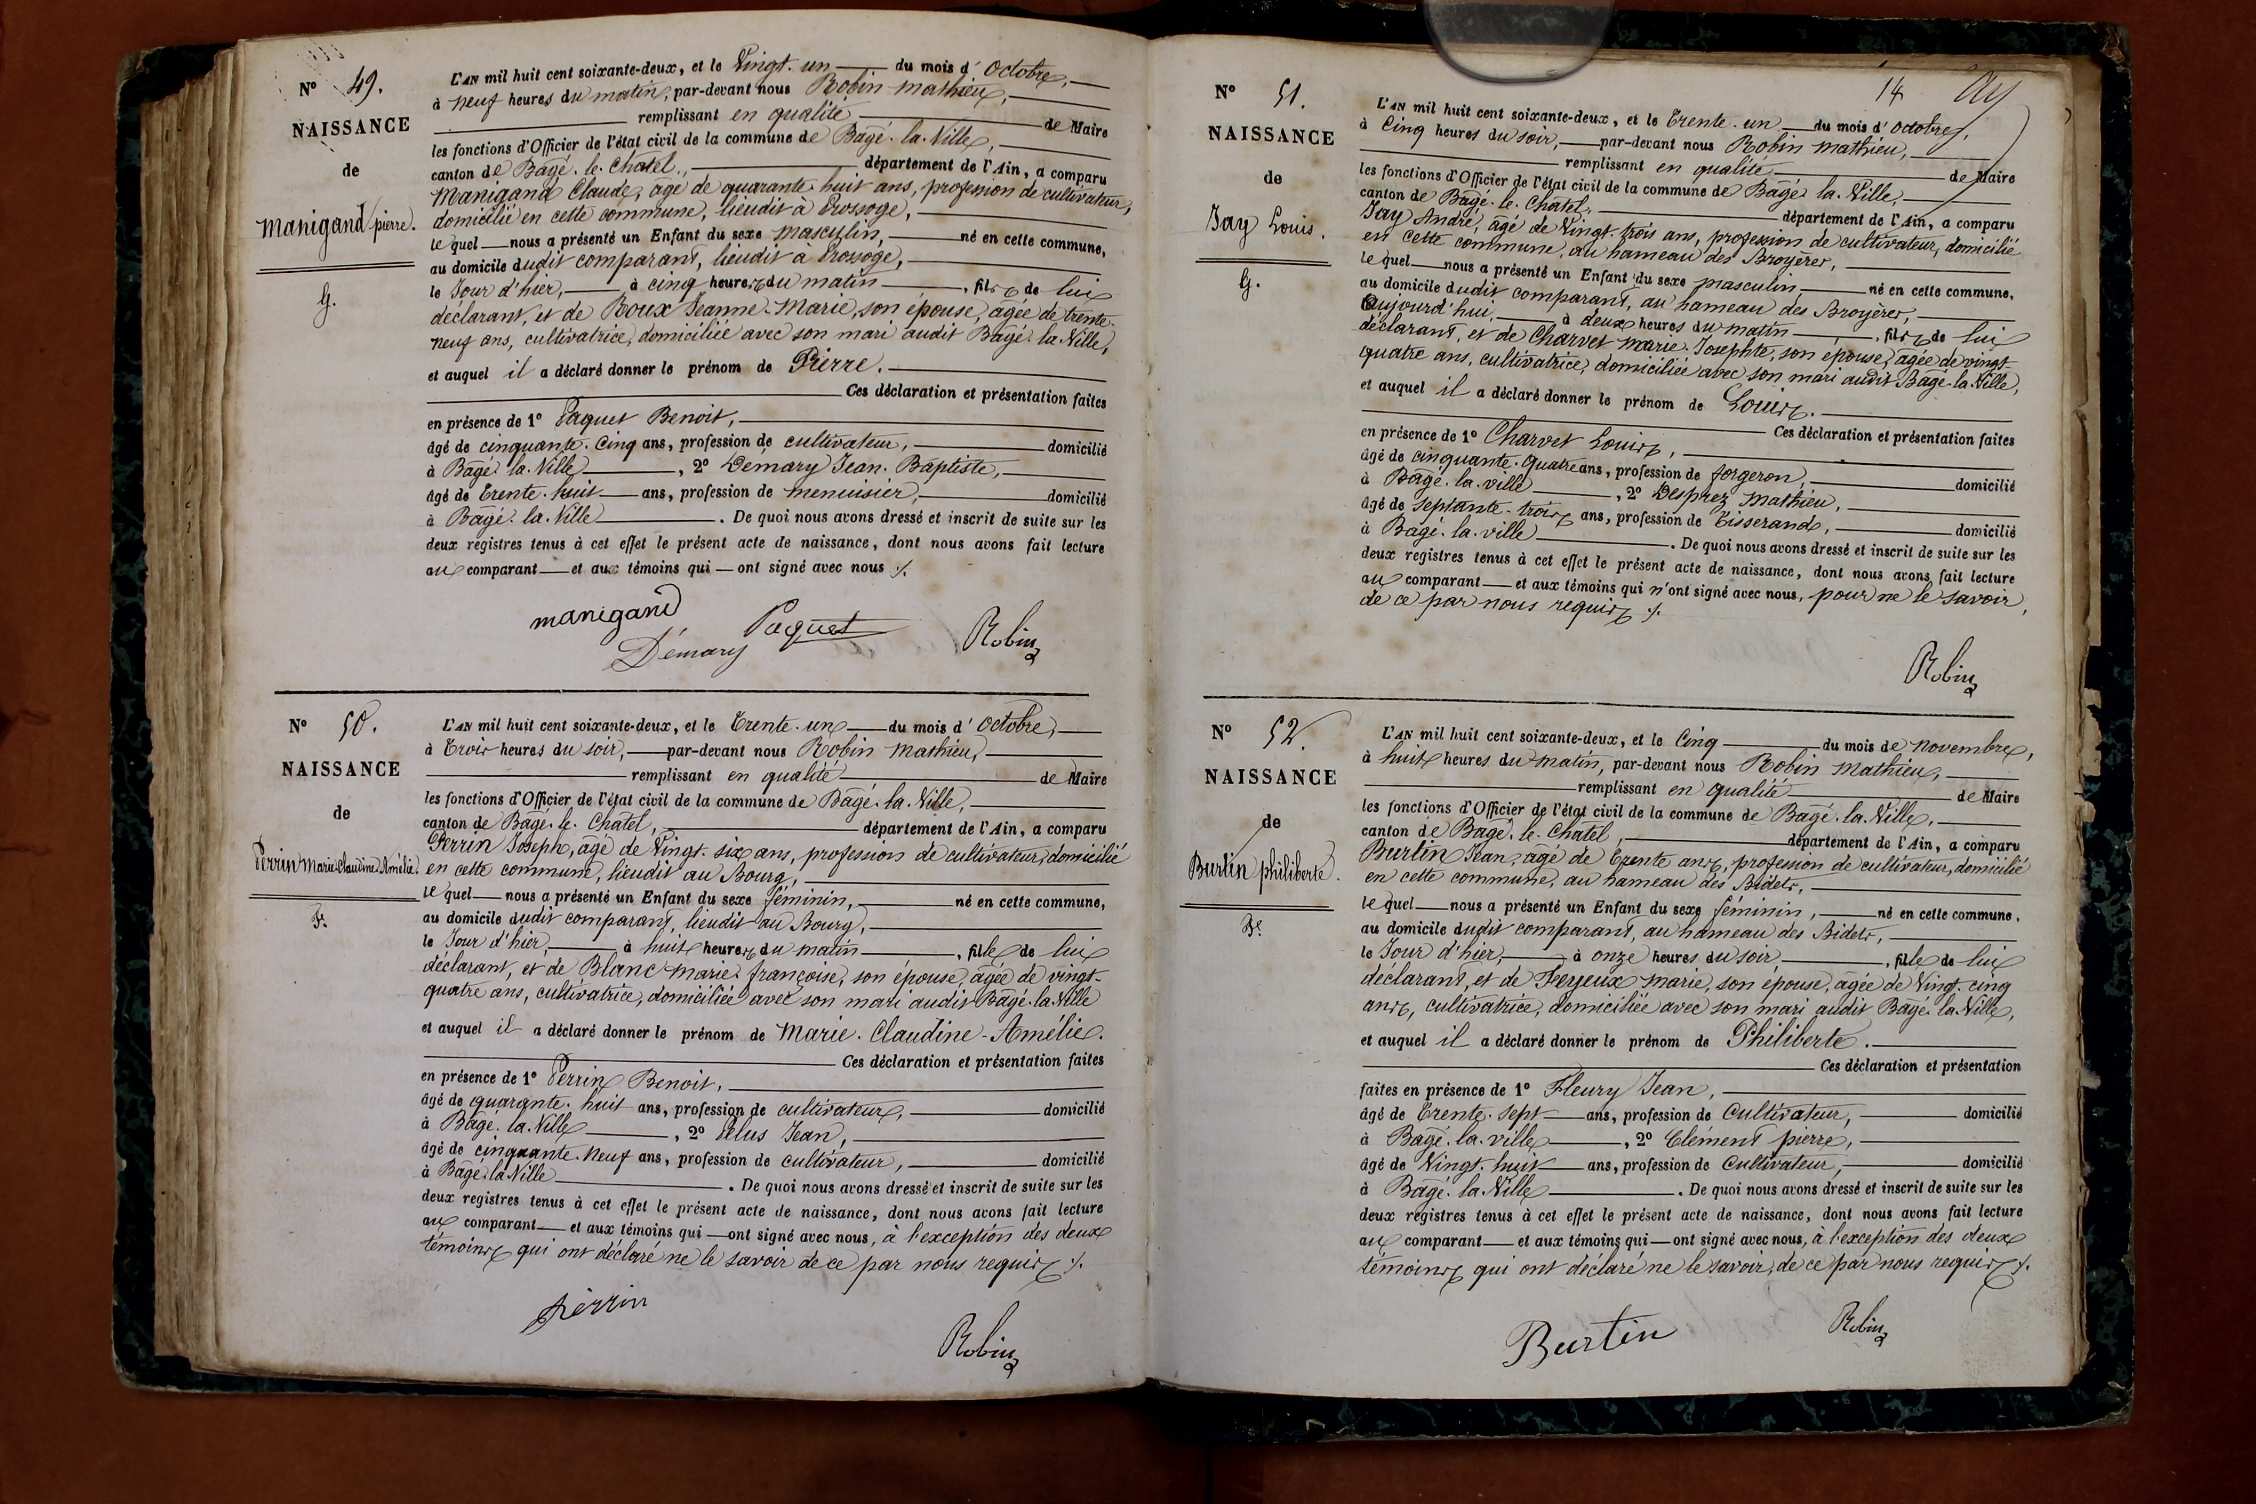 N° 49.
NAISSANCE
de
Manigand pierre.
G.
L'AN mil huit cent soixante-deux, et le Vingt-un du mois d'Octobre,
à neuf heures du matin, par-devant nous Robin Mathieu,
remplissant en qualité de Maire
les fonctions d'Officier de l'état civil de la commune de Bagé-la-Ville,
canton de Bagé-le-Chatel, département de l'Ain, a comparu
Manigand Claude, agé de quarante-huit ans, profession de cultivateur,
domicilié en cette commune, lieudit à Brossoge,
le quel nous a présenté un Enfant du sexe masculin, né en cette commune,
au domicile dudit comparant, lieudit à Brossoge,
le Jour d'hier, à cinq heures du matin, fils de lui
déclarant, et de Roux Jeanne-Marie, son épouse, agée de trente-
neuf ans, cultivatrice, domiciliée avec son mari audit Bagé-la-Ville,
et auquel il a déclaré donner le prénom de Pierre.
Ces déclaration et présentation faites
en présence de 1° Paquet Benoit,
âgé de cinquante-Cinq ans, profession de cultivateur, domicilié
à Bagé-la-Ville, 2° Démary Jean-Baptiste,
âgé de Trente-huit ans, profession de menuisier, domicilié
à Bagé-la-Ville. De quoi nous avons dressé et inscrit de suite sur les
deux registres tenus à cet effet le présent acte de naissance, dont nous avons fait lecture
au comparant et aux témoins qui ont signé avec nous ./.
manigand
Démary Paquet Robin
N° 50.
NAISSANCE
de
Perrin Marie-Claudine-Amélie.
F.
L'AN mil huit cent soixante-deux, et le Trente-un du mois d'Octobre,
à Trois heures du soir, par-devant nous Robin Mathieu,
remplissant en qualité de Maire
les fonctions d'Officier de l'état civil de la commune de Bagé-la-Ville,
canton de Bagé-le-Chatel, département de l'Ain, a comparu
Perrin Joseph, agé de Vingt-six ans, profession de cultivateur, domicilié
en cette commune, lieudit au Bourg,
le quel nous a présenté un Enfant du sexe féminin, né en cette commune,
au domicile dudit comparant, lieudit au Bourg,
le Jour d'hier, à huit heures du matin, fille de lui
déclarant, et de Blanc Marie-françoise, son épouse, agée de vingt-
quatre ans, cultivatrice, domiciliée avec son mari audit Bagé-la-Ville
et auquel il a déclaré donner le prénom de Marie-Claudine-Amélie.
Ces déclaration et présentation faites
en présence de 1° Perrin Benoit,
âgé de quarante-huit ans, profession de cultivateur, domicilié
à Bagé-la-Ville, 2° Jean,
âgé de cinquante-neuf ans, profession de cultivateur, domicilié
à Bagé-la-Ville. De quoi nous avons dressé et inscrit de suite sur les
deux registres tenus à cet effet le présent acte de naissance, dont nous avons fait lecture
au comparant et aux témoins qui ont signé avec nous, à l'exception des deux
témoins qui ont déclaré ne le savoir de ce par nous requis ./.
Perrin
Robin
14
N° 51.
NAISSANCE
de
Jay Louis.
G.
L'AN mil huit cent soixante-deux, et le Trente-un du mois d'Octobre,
à Cinq heures du soir, par-devant nous Robin Mathieu,
remplissant en qualité de Maire
les fonctions d'Officier de l'état civil de la commune de Bagé-la-Ville,
canton de Bagé-le-Chatel, département de l'Ain, a comparu
Jay André, agé de Vingt-trois ans, profession de cultivateur, domicilié
en cette commune, au hameau des Broyères,
le quel nous a présenté un Enfant du sexe masculin né en cette commune,
au domicile dudit comparant, au hameau des Broyères,
aujourd'hui, à deux heures du matin, fils de lui
déclarant, et de Charvet Marie-Josephte, son épouse, agée de vingt-
quatre ans, cultivatrice, domiciliée avec son mari audit Bagé-la-Ville,
et auquel il a déclaré donner le prénom de Louis.
Ces déclaration et présentation faites
en présence de 1° Charvet Louis,
âgé de cinquante-quatre ans, profession de forgeron, domicilié
à Bagé-la-ville, 2° Desprez Mathieu,
âgé de septante-trois ans, profession de Tisserand, domicilié
à Bagé-la-ville. De quoi nous avons dressé et inscrit de suite sur les
deux registres tenus à cet effet le présent acte de naissance, dont nous avons fait lecture
au comparant et aux témoins qui n'ont signé avec nous, pour ne le savoir,
de ce par nous requis ./.
Robin
N° 52.
NAISSANCE
de
Burtin philiberte.
F.
L'AN mil huit cent soixante-deux, et le Cinq du mois de novembre,
à huit heures du matin, par-devant nous Robin Mathieu,
remplissant en qualité de Maire
les fonctions d'Officier de l'état civil de la commune de Bagé-la-Ville,
canton de Bagé-le-Chatel, département de l'Ain, a comparu
Burtin Jean, agé de Trente ans, profession de cultivateur, domicilié
en cette commune, au hameau des Bidets,
le quel nous a présenté un Enfant du sexe féminin, né en cette commune,
au domicile dudit comparant, au hameau des Bidets,
le Jour d'hier, à onze heures du soir, fille de lui
déclarant, et de Feyeux Marie, son épouse, agée de Vingt-cinq
ans, cultivatrice, domiciliée avec son mari audit Bagé-la-Ville,
et auquel il a déclaré donner le prénom de Philiberte.
Ces déclaration et présentation
faites en présence de 1° Fleury Jean,
âgé de Trente-sept ans, profession de Cultivateur, domicilié
à Bagé-la-ville, 2° Clément pierre,
âgé de Vingt-huit ans, profession de Cultivateur, domicilié
à Bagé-la-Ville. De quoi nous avons dressé et inscrit de suite sur les
deux registres tenus à cet effet le présent acte de naissance, dont nous avons fait lecture
au comparant et aux témoins qui ont signé avec nous, à l'exception des deux
témoins qui ont déclaré ne le savoir, de ce par nous requis ./.
Burtin
Robin